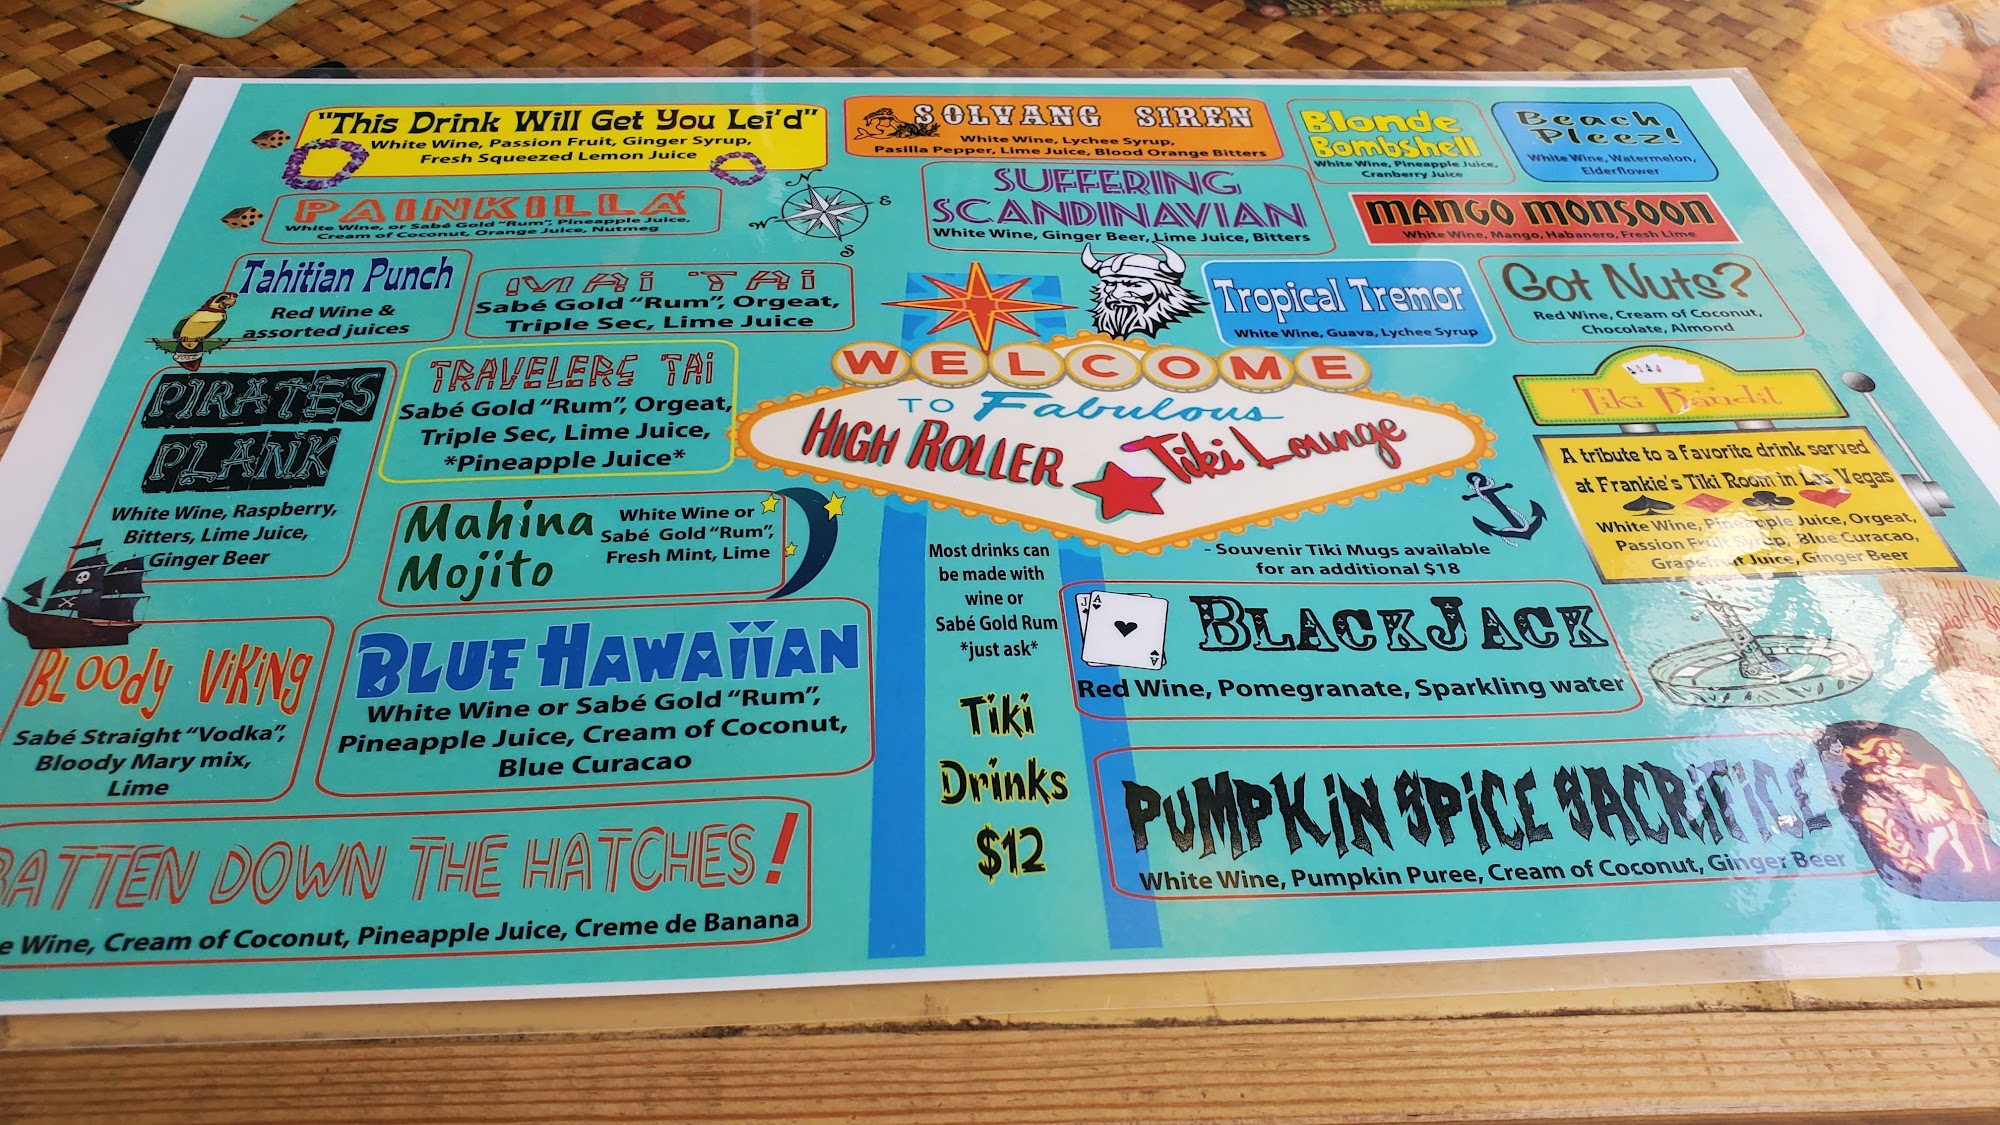 "This Drink Will Get You Lei'd"
White Wine, Passion Fruit, Ginger Syrup,
Fresh Squeezed Lemon Juice
SOLVANG SIREN
White Wine, Lychee Syrup,
Pasilla Pepper, Lime Juice, Blood Orange Bitters
Blonde
Bombshell
White Wine, Pineapple Juice,
Cranberry Juice
Beach
Pleez!
White Wine, Watermelon,
Elderflower
PAINKILLA
White Wine, or Sabé Gold "Rum", Pineapple Juice,
Cream of Coconut, Orange Juice, Nutmeg
N
S
W
S
SUFFERING
SCANDINAVIAN
White Wine, Ginger Beer, Lime Juice, Bitters
MANGO MONSOON
White Wine, Mango, Habanero, Fresh Lime
Tahitian Punch
Red Wine &
assorted juices
MAI TAI
Sabé Gold "Rum", Orgeat,
Triple Sec, Lime Juice
Tropical Tremor
White Wine, Guava, Lychee Syrup
Got Nuts?
Red Wine, Cream of Coconut,
Chocolate, Almond
PIRATES
PLANK
White Wine, Raspberry,
Bitters, Lime Juice,
Ginger Beer
TRAVELERS TAI
Sabé Gold "Rum", Orgeat,
Triple Sec, Lime Juice,
*Pineapple Juice*
WELCOME
TO Fabulous
HIGH ROLLER Tiki Lounge
Tiki Bandit
A tribute to a favorite drink served
at Frankie's Tiki Room in Las Vegas
White Wine, Pineapple Juice, Orgeat,
Passion Fruit Syrup, Blue Curacao,
Grapefruit Juice, Ginger Beer
Mahina
Mojito
White Wine or
Sabé Gold "Rum",
Fresh Mint, Lime
Most drinks can
be made with
wine or
Sabé Gold Rum
*just ask*
- Souvenir Tiki Mugs available
for an additional $18
Bloody Viking
Sabé Straight "Vodka",
Bloody Mary mix,
Lime
BLUE HAWAIIAN
White Wine or Sabé Gold "Rum",
Pineapple Juice, Cream of Coconut,
Blue Curacao
Tiki
Drinks
$12
J
A
A
BLACKJACK
Red Wine, Pomegranate, Sparkling water
BATTEN DOWN THE HATCHES!
e Wine, Cream of Coconut, Pineapple Juice, Creme de Banana
PUMPKIN SPICE SACRIFICE
White Wine, Pumpkin Puree, Cream of Coconut, Ginger Beer